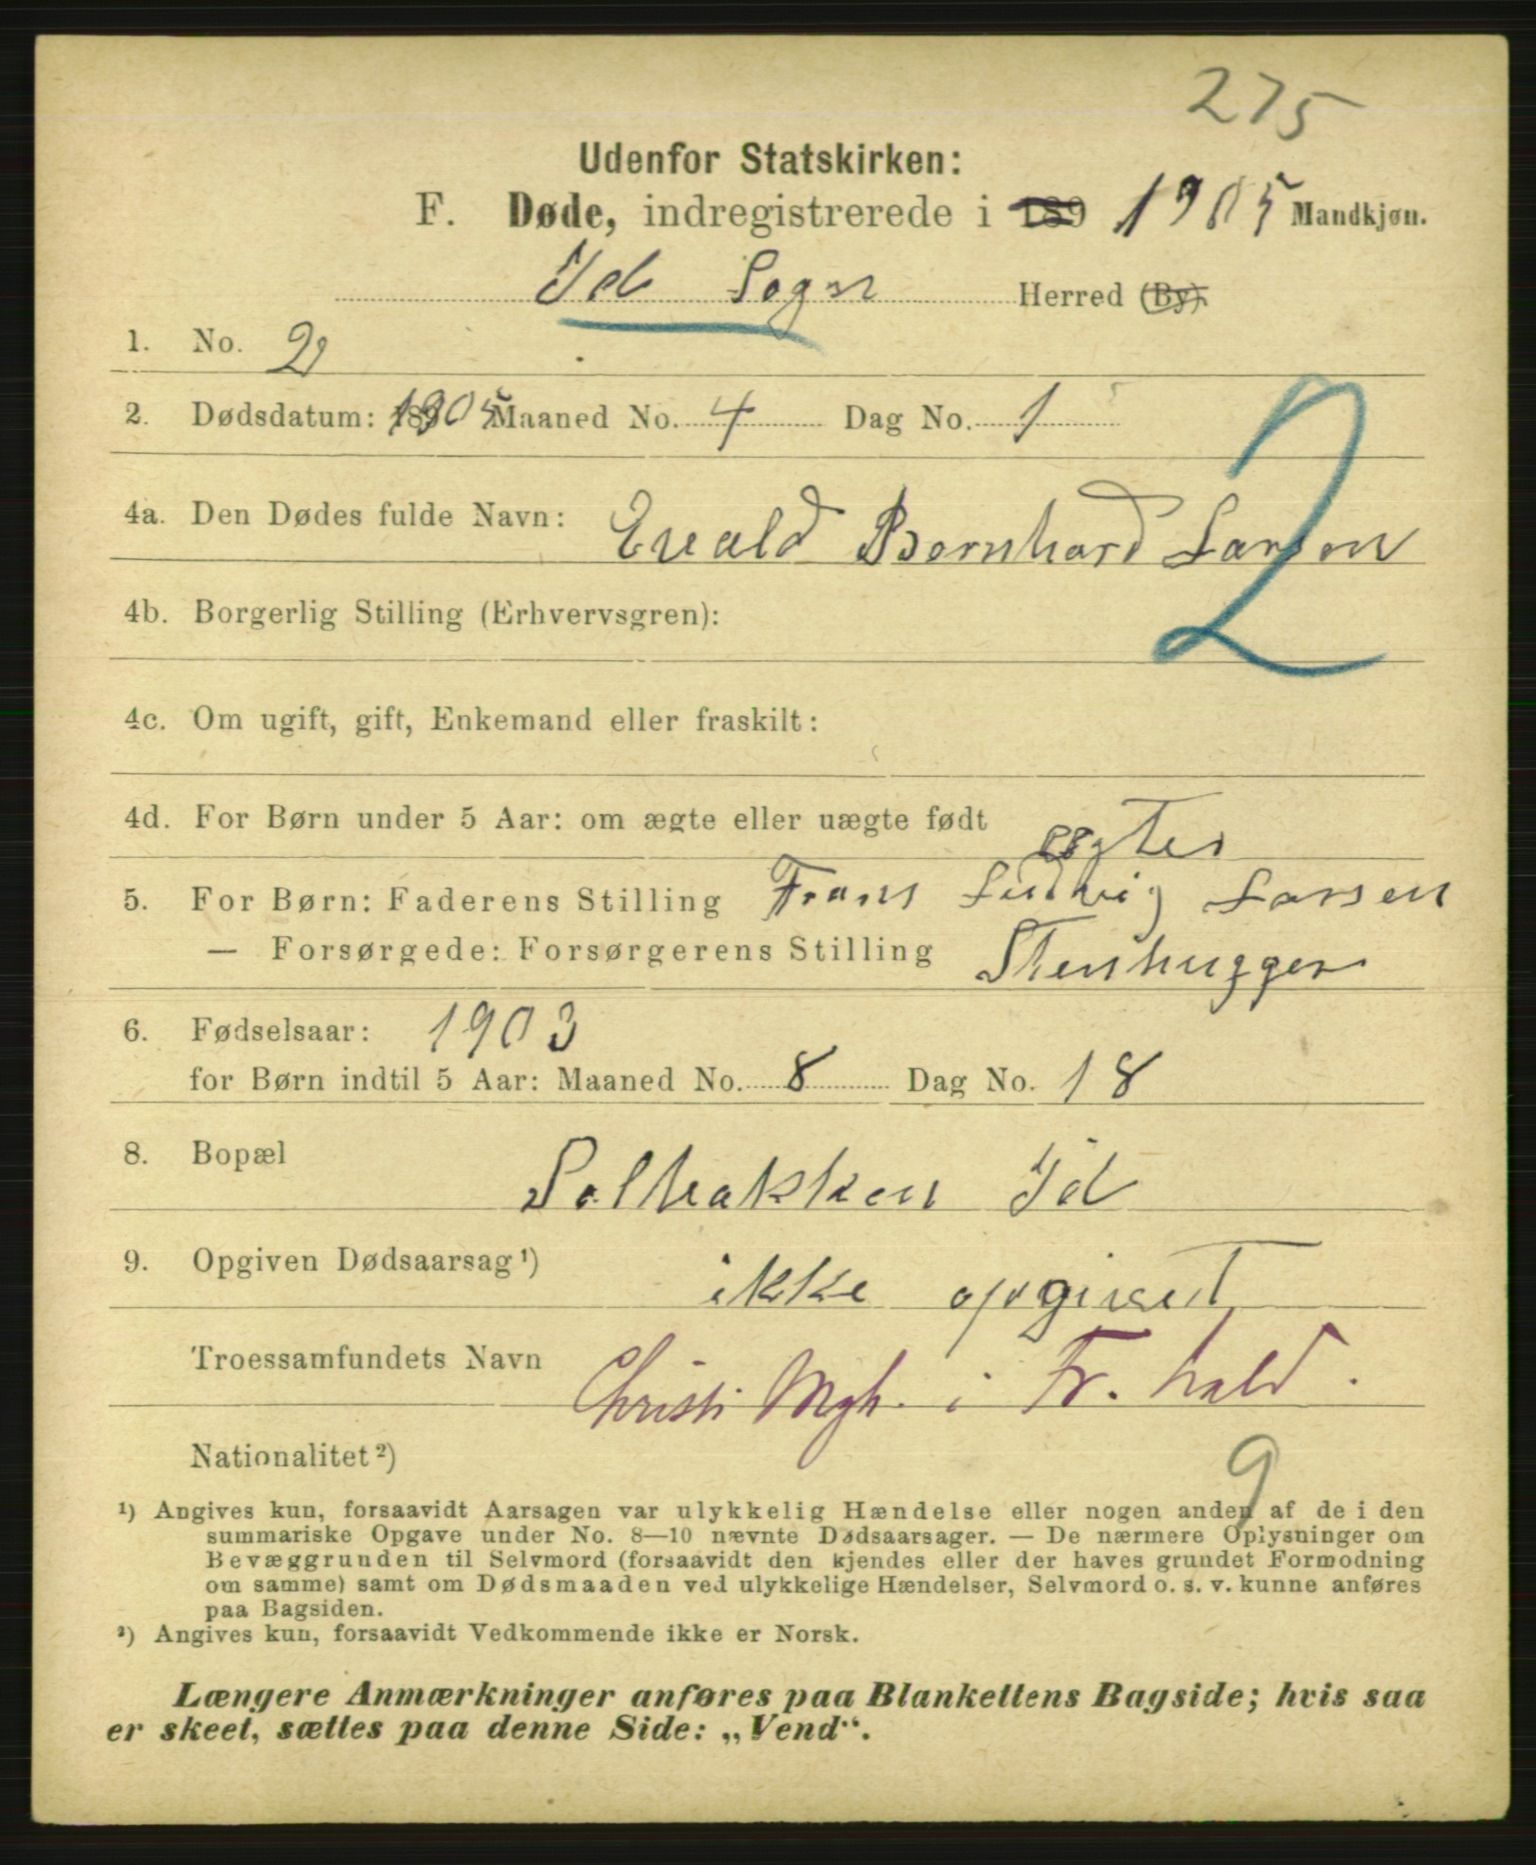 275
Udenfor Statskirken:
F. Døde, indregistrerede i 189 1905 Mandkjøn.
Id Sogn Herred (By).
1. No. 2
2. Dødsdatum: 1905 Maaned No. 4 Dag No. 1
2
4a. Den Dødes fulde Navn: Evald Bernhard Larsen
4b. Borgerlig Stilling (Erhvervsgren):
4c. Om ugift, gift, Enkemand eller fraskilt:
4d. For Børn under 5 Aar: om ægte eller uægte født ægte
5. For Børn: Faderens Stilling Frans Ludvig Larsen
— Forsørgede: Forsørgerens Stilling Stenhugger
6. Fødselsaar: 1903
for Børn indtil 5 Aar: Maaned No. 8 Dag No. 18
8. Bopæl Solbakken Id
9. Opgiven Dødsaarsag ¹) ikke opgivet
Troessamfundets Navn Christi Mgh. i Fr.hald.
Nationalitet ²)
9
¹) Angives kun, forsaavidt Aarsagen var ulykkelig Hændelse eller nogen anden af de i den
summariske Opgave under No. 8—10 nævnte Dødsaarsager. — De nærmere Oplysninger om
Bevæggrunden til Selvmord (forsaavidt den kjendes eller der haves grundet Formodning
om samme) samt om Dødsmaaden ved ulykkelige Hændelser, Selvmord o. s. v. kunne anføres
paa Bagsiden.
²) Angives kun, forsaavidt Vedkommende ikke er Norsk.
Længere Anmærkninger anføres paa Blankettens Bagside; hvis saa
er skeet, sættes paa denne Side: „Vend“.